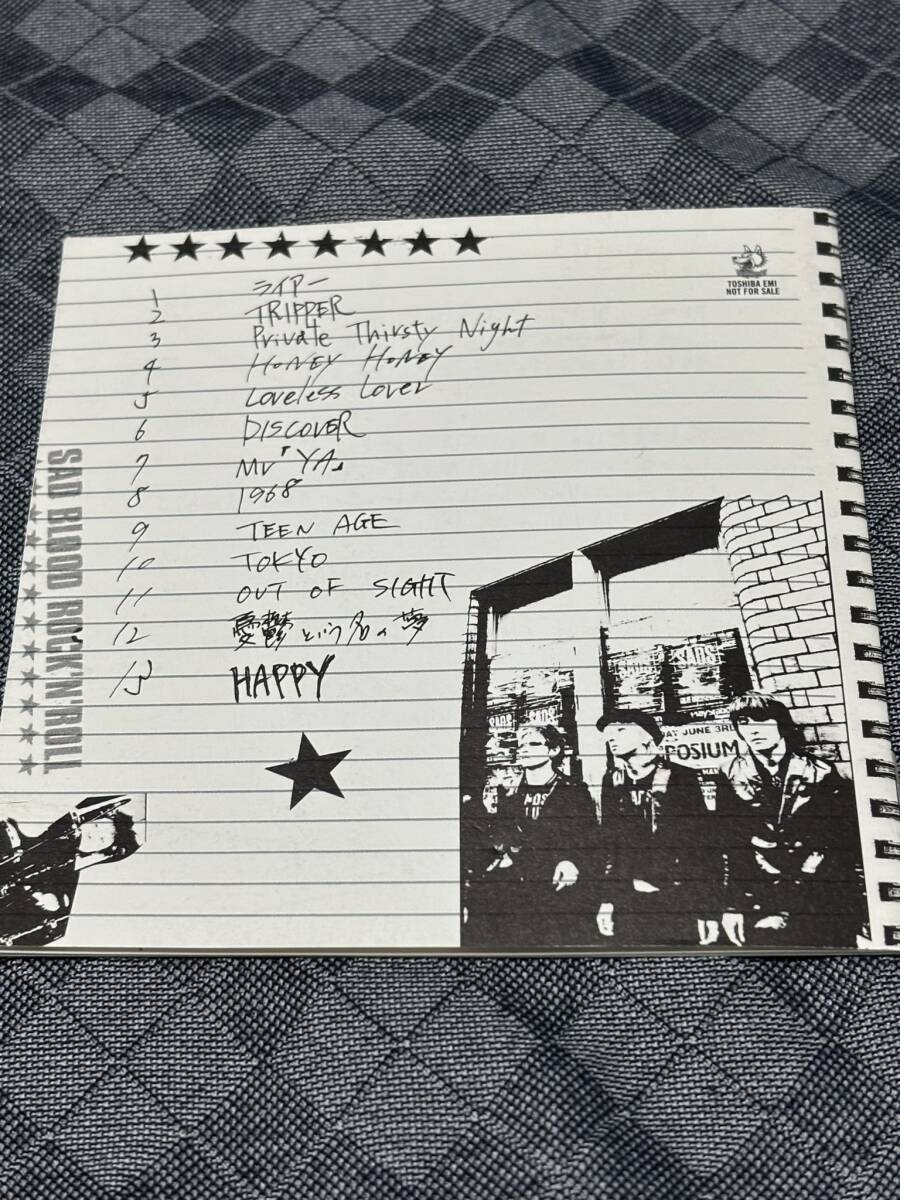 TOSHIBA EMI
NOT FOR SALE
1 ライアー
2 TRIPPER
3 Private Thirsty Night
4 HONEY HONEY
5 Loveless Lover
6 DISCOVER
7 Mr「YA」
8 1968
9 TEEN AGE
10 TOKYO
11 OUT OF SIGHT
12 憂鬱という名の夢
13 HAPPY
SAD BLOOD ROCK'N'ROLL
SADS
SADS
SADS
JUNE 3RD
POSIUM